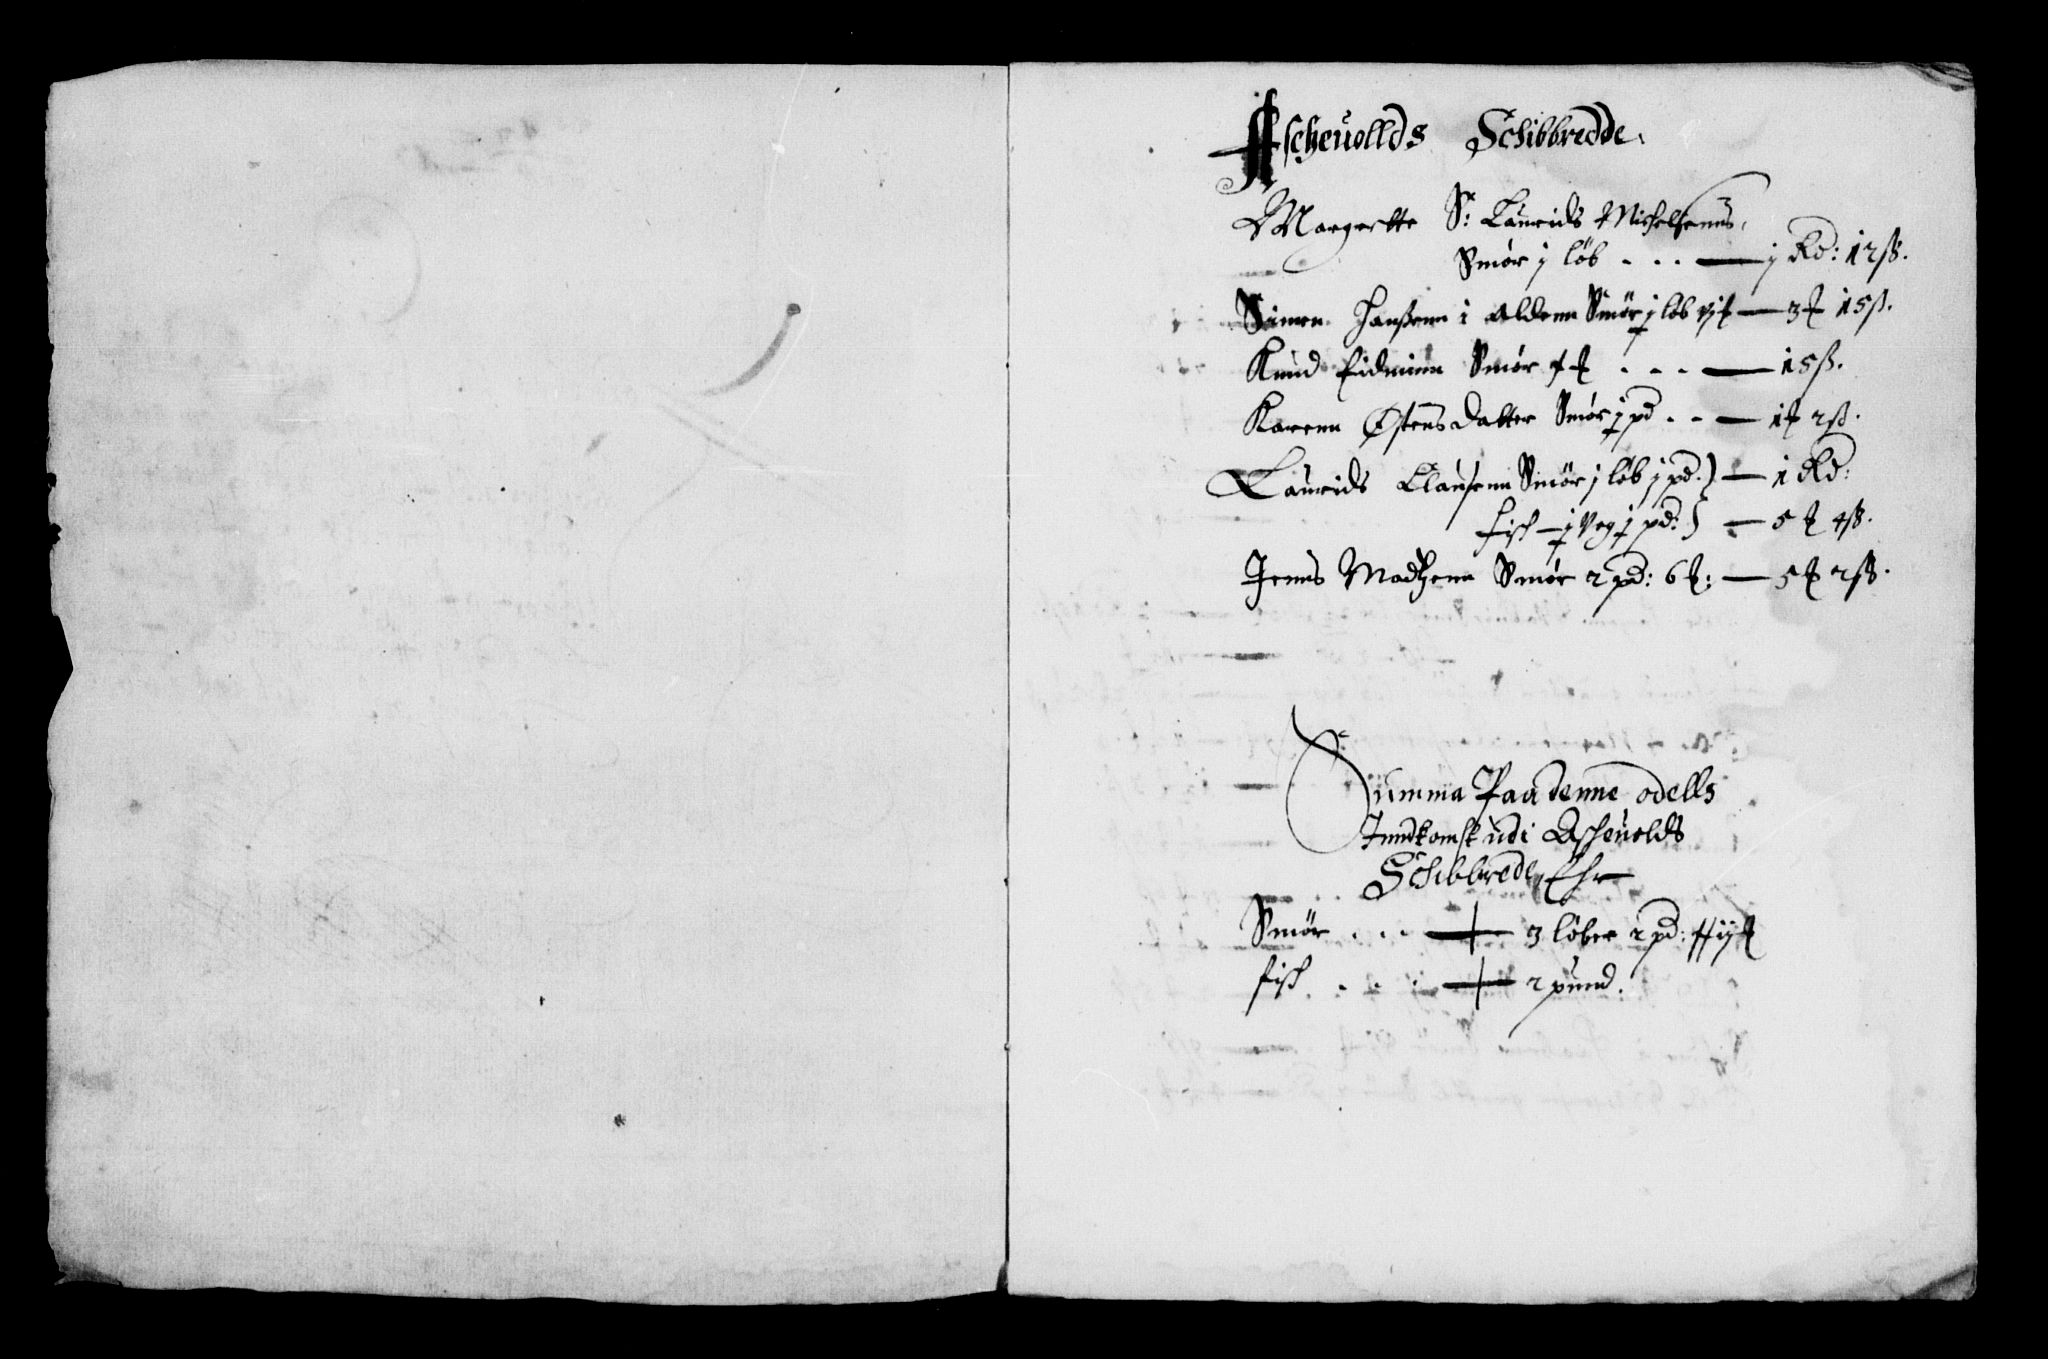 Ascheuollds Schibbredde.
Margrette S: Laurids Michelsenns,
Smør j løb - - - — j Rd: 12 ß.
Simen Hanßenn i Aldenn Smør j løb vj ₰ — 3 ₰ 15 ß.
Knud Eidminn Smør - - - — 15 ß.
Karenn Østensdatter Smør j pd - - — 1 ₰ 2 ß.
Laurids Clausenn Smør j løb j pd. } — 1 Rd:
fisk — j Veg j pd: } — 5 ₰ 4 ß.
Jenns Madtzenn Smør 2 pd: 6 ₰: — 5 ₰ 2 ß.
Summa Paa denne odells
Inndkomst udi Ascheuolds
Schibbrede, Ehr
Smør - - - — 3 løber 2 pd:
fisk - - - — 2 pund.